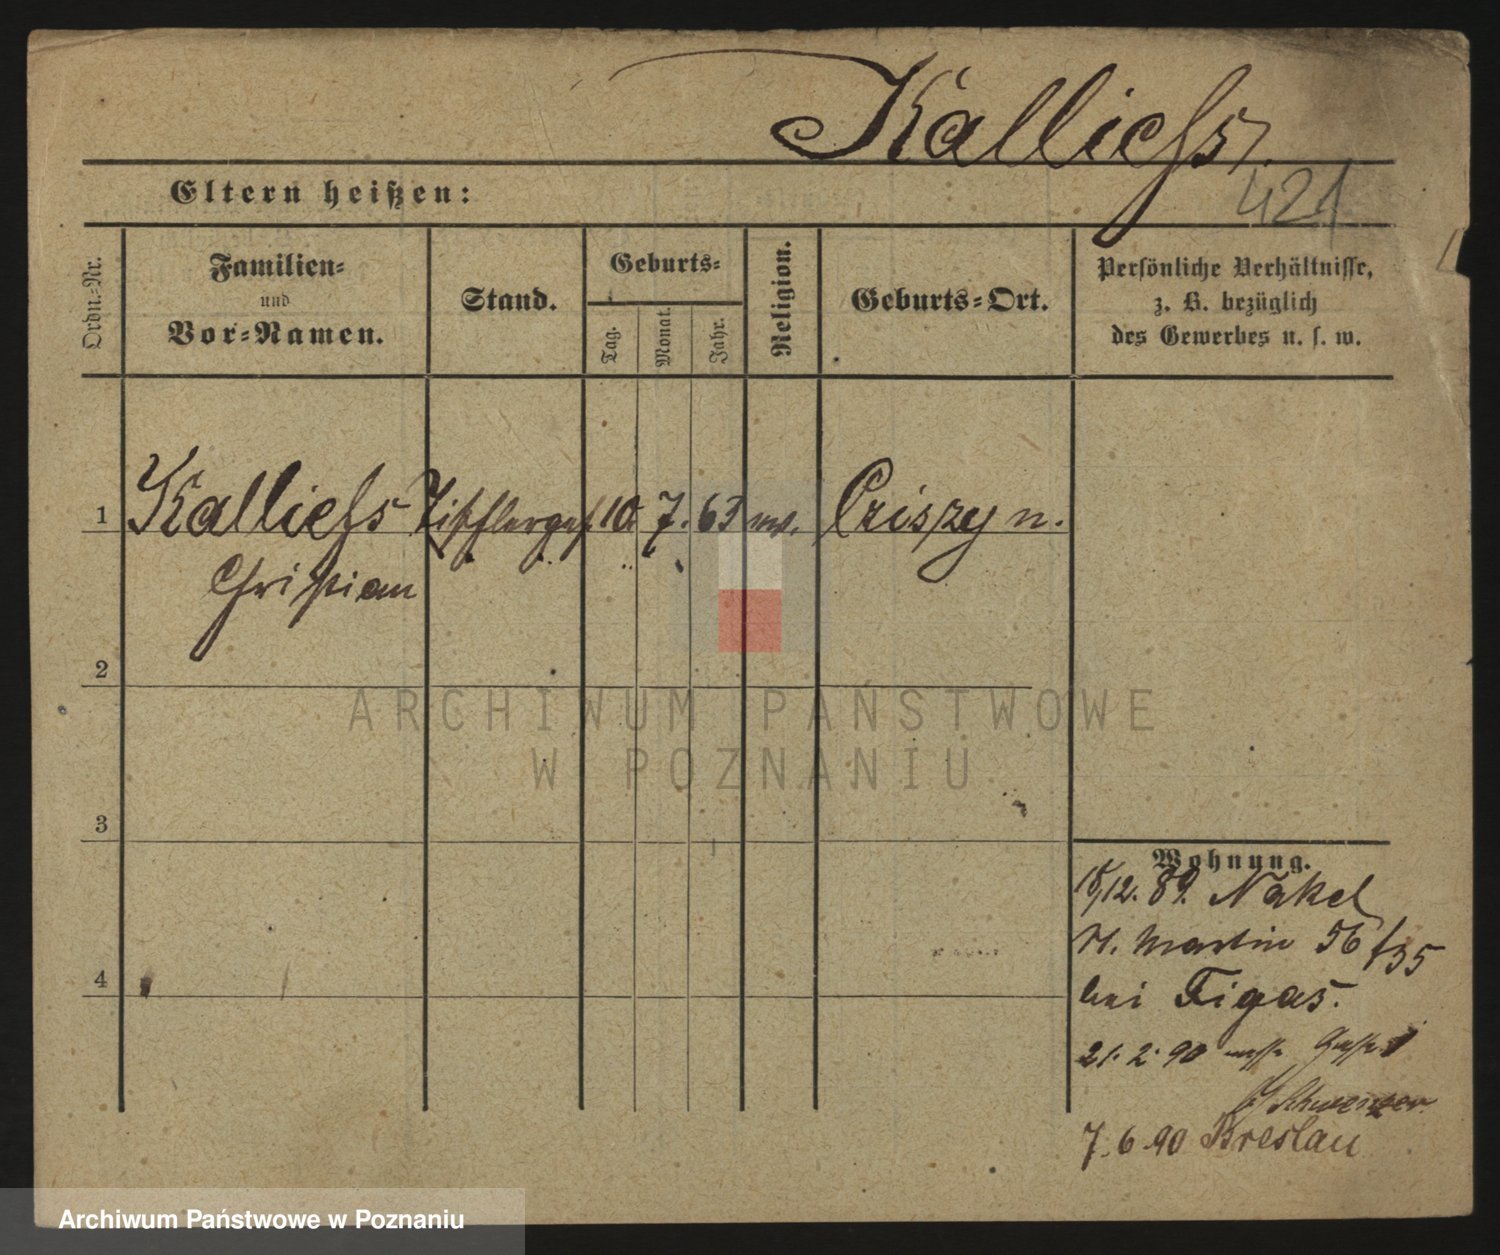 Kallieſs.
421
Eltern heißen:
Ordn.-Nr.
Familien-
und
Vor-Namen.
Stand.
Geburts-
Tag.
Monat.
Jahr.
Religion.
Geburts-Ort.
Perſönliche Verhältniſſe,
z. B. bezüglich
des Gewerbes u. ſ. w.
1 Kallieſs Tiſchlergeſ. 10. 7. 63 ev.
Chriſtian
2
3
4
Wohnung.
12. 89. Nakel
St. Martin 56/35
bei Figas.
21. 2. 90
7. 6. 90 Breslau
ARCHIWUM PAŃSTWOWE
W POZNANIU
Archiwum Państwowe w Poznaniu